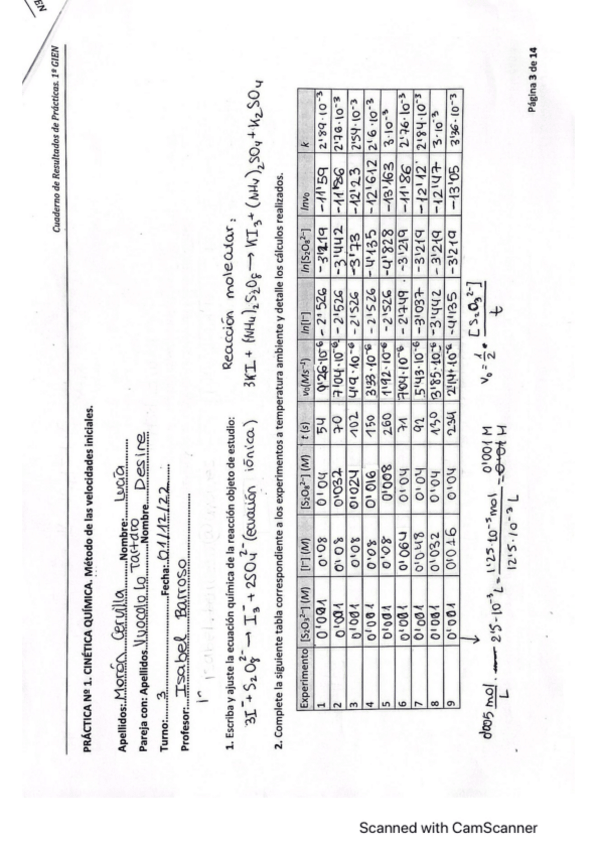 Cuaderno de Resultados de Prácticas. 1º GIEN
PRÁCTICA Nº 1. CINÉTICA QUÍMICA. Método de las velocidades iniciales.
Apellidos: Morón Cervilla Nombre: Lucía
Pareja con: Apellidos Vuocolo Lo Tartaro Nombre Desire
Turno: 3 Fecha: 01/12/22
Profesor: Isabel Barroso
1. Escriba y ajuste la ecuación química de la reacción objeto de estudio: Reacción molecular:
3I⁻ + S₂O₈²⁻ → I₃⁻ + 2SO₄²⁻ (ecuación iónica) 3KI + (NH₄)₂S₂O₈ → KI₃ + (NH₄)₂SO₄ + K₂SO₄
2. Complete la siguiente tabla correspondiente a los experimentos a temperatura ambiente y detalle los cálculos realizados.
Experimento [S₂O₃²⁻] (M) [I⁻] (M) [S₂O₈²⁻] (M) t (s) v₀(Ms⁻¹) ln[I⁻] ln[S₂O₈²⁻] lnv₀ k
1 0'001 0'08 0'04 54 9'26·10⁻⁶ -2'526 -3'219 -11'59 2'89·10⁻³
2 0'001 0'08 0'032 70 7'04·10⁻⁶ -2'526 -3'442 -11'86 2'76·10⁻³
3 0'001 0'08 0'024 102 4'9·10⁻⁶ -2'526 -3'73 -12'23 2'54·10⁻³
4 0'001 0'08 0'016 150 3'33·10⁻⁶ -2'526 -4'135 -12'612 2'6·10⁻³
5 0'001 0'08 0'008 260 1'92·10⁻⁶ -2'526 -4'828 -13'163 3·10⁻³
6 0'001 0'064 0'04 71 7'04·10⁻⁶ -2'749 -3'219 -11'86 2'76·10⁻³
7 0'001 0'048 0'04 92 5'43·10⁻⁶ -3'037 -3'219 -12'12 2'84·10⁻³
8 0'001 0'032 0'04 130 3'85·10⁻⁶ -3'442 -3'219 -12'47 3·10⁻³
9 0'001 0'016 0'04 234 2'14·10⁻⁶ -4'135 -3'219 -13'05 3'36·10⁻³
mol/L 2'5·10⁻³ L = 1'25·10⁻⁵ mol / 12'5·10⁻³ L = 0'001 M
v₀ = 1/2 · [S₂O₃²⁻] / t
Página 3 de 14
Scanned with CamScanner